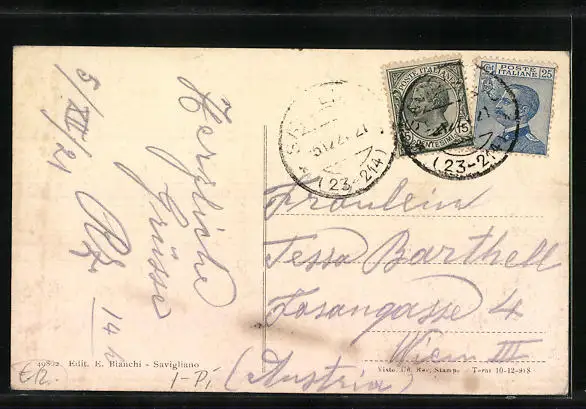 5/XII/21
Herzliche
Grüsse
14 h
POSTE ITALIANE
15
POSTE
ITALIANE
25
5.12.21
(23-24)
(23-24)
Fräulein
Tessa Barthell
Fasangasse 4
Wien III
(Austria)
49802 Edit. E. Bianchi - Savigliano
Visto. Uff. Rev. Stampa Terni 10-12-918
I-Pi